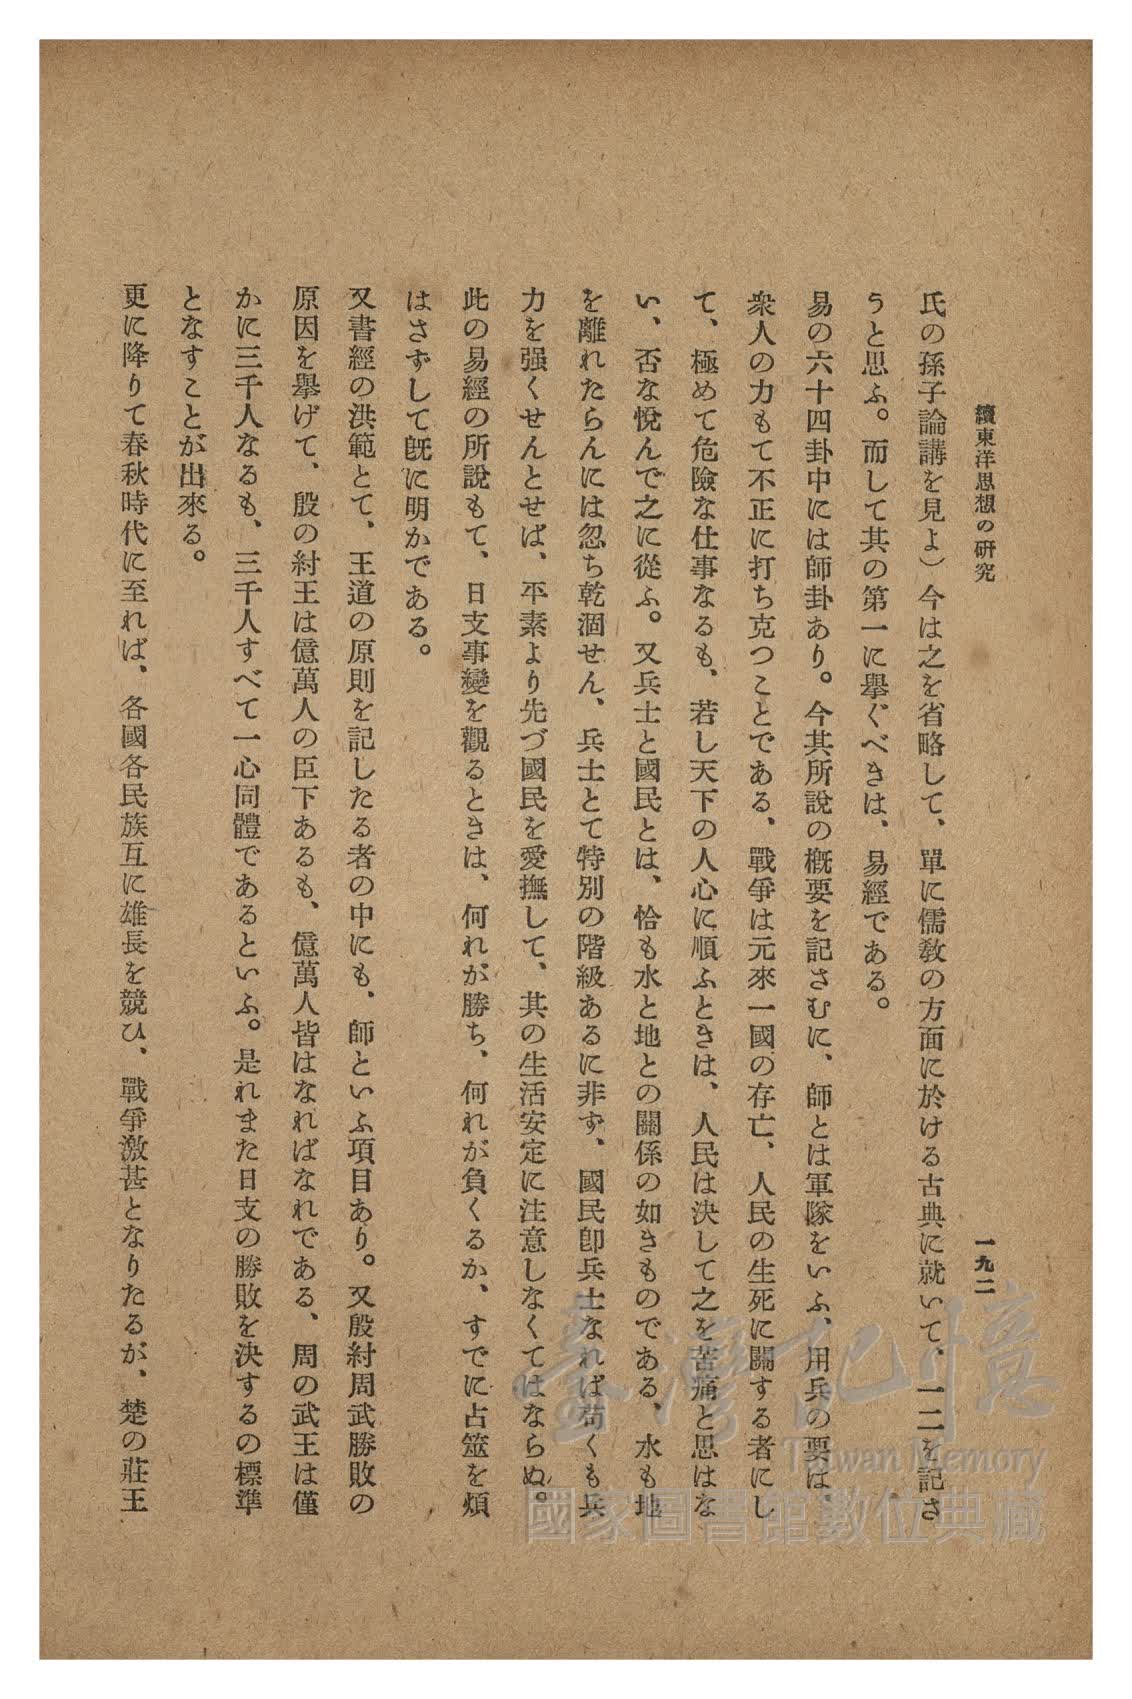 續東洋思想の硏究
一九二
氏の孫子論講を見よ）今は之を省略して、單に儒敎の方面に於ける古典に就いて、一二を記さ
うと思ふ。而して其の第一に擧ぐべきは、易經である。
易の六十四卦中には師卦あり。今其所說の槪要を記さむに、師とは軍隊をいふ、用兵の要は、
衆人の力もて不正に打ち克つことである、戰爭は元來一國の存亡、人民の生死に關する者にし
て、極めて危險な仕事なるも、若し天下の人心に順ふときは、人民は決して之を苦痛と思はな
い、否な悅んで之に從ふ。又兵士と國民とは、恰も水と地との關係の如きものである、水も地
を離れたらんには忽ち乾涸せん、兵士とて特別の階級あるに非ず、國民卽兵士なれば苟くも兵
力を强くせんとせば、平素より先づ國民を愛撫して、其の生活安定に注意しなくてはならぬ。
此の易經の所說もて、日支事變を觀るときは、何れが勝ち、何れが負くるか、すでに占筮を煩
はさずして旣に明かである。
又書經の洪範とて、王道の原則を記したる者の中にも、師といふ項目あり。又殷紂周武勝敗の
原因を擧げて、殷の紂王は億萬人の臣下あるも、億萬人皆はなればなれである、周の武王は僅
かに三千人なるも、三千人すべて一心同體であるといふ。是れまた日支の勝敗を決するの標準
となすことが出來る。
更に降りて春秋時代に至れば、各國各民族互に雄長を競ひ、戰爭激甚となりたるが、楚の莊王
臺灣記憶
Taiwan Memory
國家圖書館數位典藏